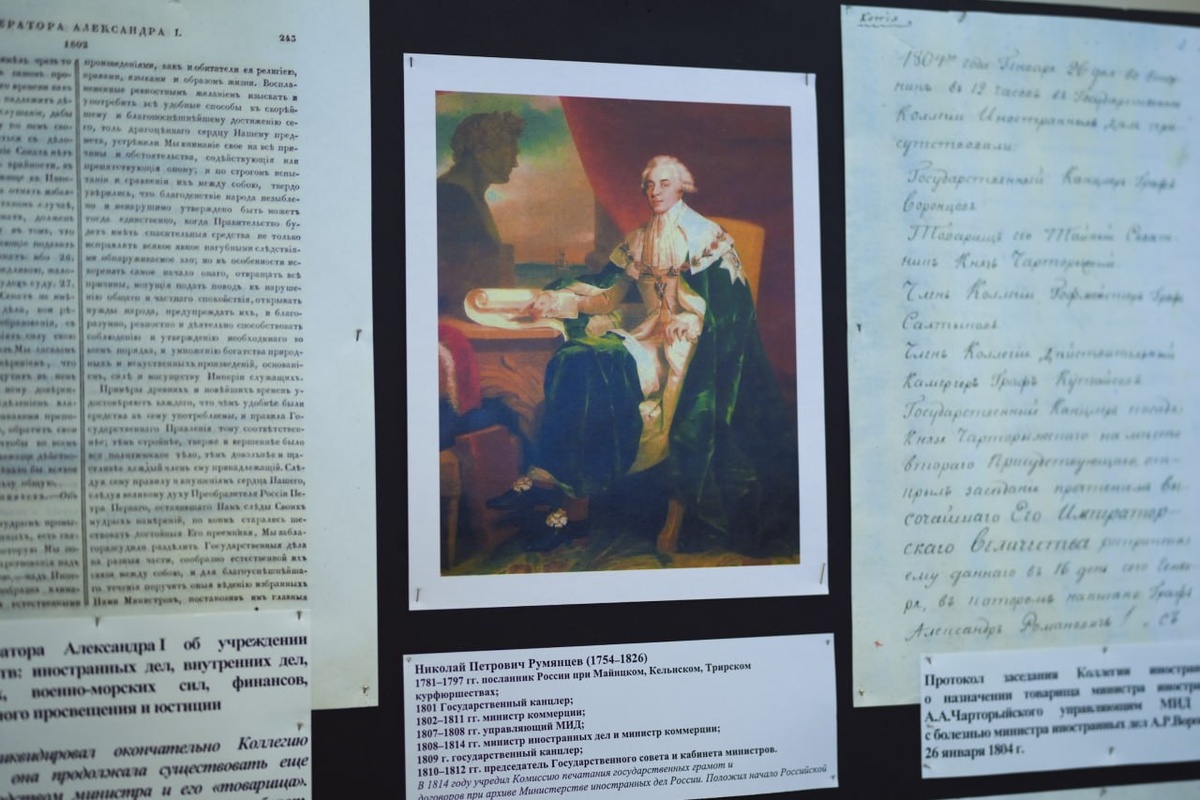 ЕРАТОРА АЛЕКСАНДРА I.
243
1802
произведеніями, какъ и обитатели ея религіею,
нравами, языками и образомъ жизни. Воспла-
мененные ревностнымъ желаніемъ изыскать и
употребить всѣ удобные способы къ скорѣй-
шему и благопоспѣшнѣйшему достиженію се-
го, толь драгоцѣннаго сердцу Нашему пред-
мета, устремили Мы вниманіе свое на всѣ при-
чины и обстоятельства, содѣйствующія или
препятствующія оному; и по строгомъ испы-
таніи и сравненіи ихъ между собою, твердо
увѣрились, что благоденствіе народа незыбле-
мо и ненарушимо утверждено быть можетъ
тогда единственно, когда Правительство бу-
детъ имѣть спасительныя средства не только
исправлять всякое явное пагубными слѣдствія-
ми обнаруживаемое зло; но въ особенности ис-
коренять самое начало онаго, отвращать всѣ
причины, могущія подать поводъ къ наруше-
нію общаго и частнаго спокойствія, открывать
нужды народа, предупреждать ихъ, и благо-
разумно, ревностно и дѣятельно способствовать
соблюденію и утвержденію необходимаго во
всемъ порядка, и умноженію богатства природ-
ныхъ и искуственныхъ произведеній, основані-
емъ, силѣ и могуществу Имперіи служащихъ.
Примѣры древнихъ и новѣйшихъ временъ у-
достовѣряютъ каждаго, что чѣмъ удобнѣе были
средства къ сему употребляемы, и правила Го-
сударственнаго Правленія тому соотвѣтствен-
нѣе; тѣмъ стройнѣе, тверже и вершеннѣе было
все политическое тѣло, тѣмъ довольнѣе и ща-
стливѣе каждый членъ ему принадлежащій. Слѣ-
дуя сему правилу и внушеніямъ сердца Нашего,
слѣдуя великому духу Преобразителя Россіи Пе-
тра Перваго, оставившаго Намъ слѣды Своихъ
мудрыхъ намѣреній, по коимъ старались ше-
ствовать достойные Его преемники, Мы забла-
горазсудили раздѣлить Государственныя дѣла
на разныя части, сообразно естественной ихъ
связи между собою, и для благоуспѣшнѣйша-
го теченія поручить оныя вѣденію избранныхъ
Нами Министровъ, постановивъ имъ главныя
атора Александра I об учреждении
тв: иностранных дел, внутренних дел,
х, военно-морских сил, финансов,
ного просвещения и юстиции
иквидировал окончательно Коллегию
она продолжала существовать еще
дством министра и его «товарища».
Николай Петрович Румянцев (1754–1826)
1781–1797 гг. посланник России при Майнцком, Кельнском, Трирском
курфюршествах;
1801 Государственный канцлер;
1802–1811 гг. министр коммерции;
1807–1808 гг. управляющий МИД;
1808–1814 гг. министр иностранных дел и министр коммерции;
1809 г. государственный канцлер;
1810–1812 гг. председатель Государственного совета и кабинета министров.
В 1814 году учредил Комиссию печатания государственных грамот и
договоров при архиве Министерстве иностранных дел России. Положил начало Российской
Копія
1804го года Генваря 26 дня по
нихъ въ 12 часовъ въ Государственной
Коллегіи Иностранныхъ дѣлъ при-
сутствовали:
Государственный Канцлеръ Графъ
Воронцовъ.
Товарищъ его Тайный Совѣт-
никъ Князь Чарторыский.
Членъ Коллегіи Гофмейстеръ Графъ
Салтыковъ.
Членъ Коллегіи Дѣйствительный
Камергеръ Графъ Кутайсовъ.
Государственный Канцлеръ посадя
Князя Чарторыжскаго на мѣсто
втораго Присутствующаго от-
крылъ засѣданіе прочтеніемъ вы-
сочайшаго Его Император-
скаго Величества рескрипта
ему даннаго въ 16 день сего Генва-
ря, въ которомъ написано Графъ
Александръ Романовичъ! Съ
Протокол заседания Коллегии иностран
о назначении товарища министра иностр
А.А.Чарторыйского управляющим МИД
с болезнью министра иностранных дел А.Р.Воро
26 января 1804 г.